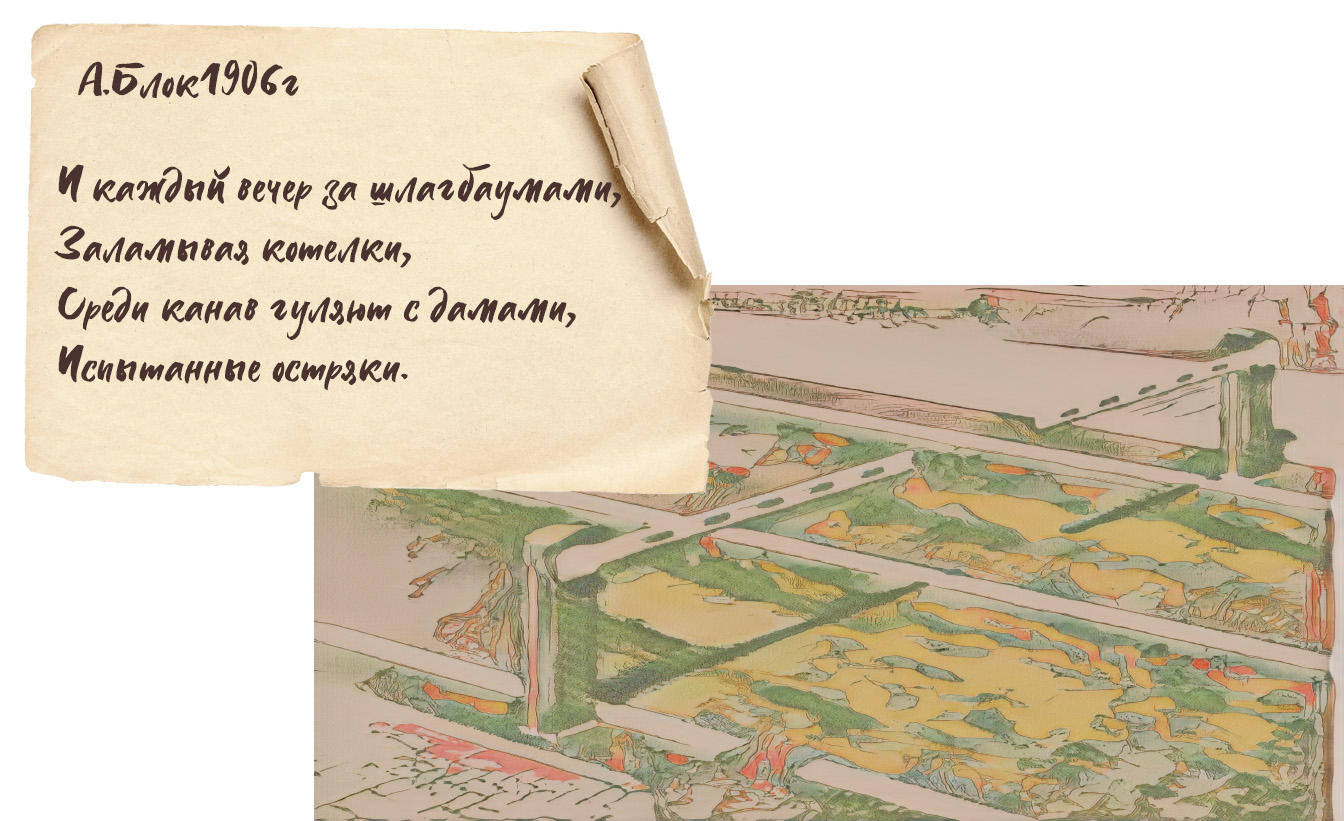 А.Блок1906г
И каждый вечер за шлагбаумами,
Заламывая котелки,
Среди канав гуляют с дамами,
Испытанные остряки.